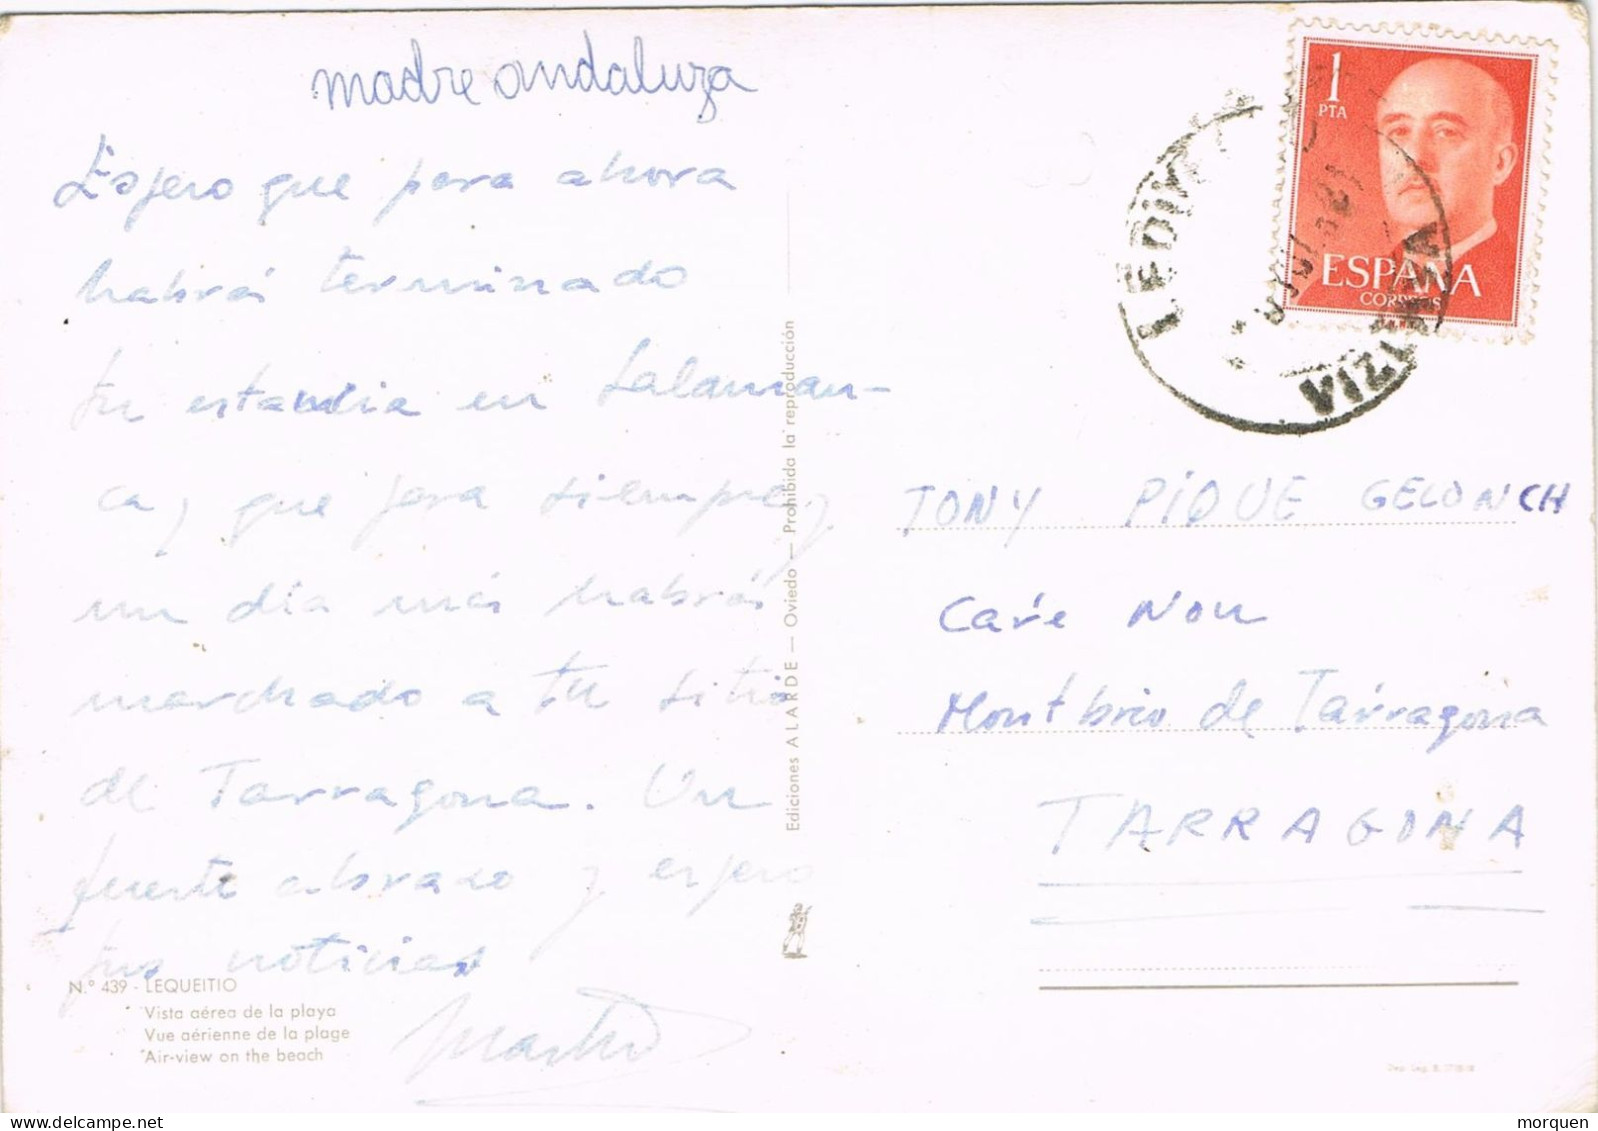 madre andaluza
Espero que para ahora
habrás terminado
tu estandia en Salaman-
ca, que para siempre, y
un día más habrás
marchado a tu sitio
de Tarragona. Un
fuerte abrazo y espero
tus noticias
N.º 439 - LEQUEITIO
Vista aérea de la playa
Vue aérienne de la plage
Air-view on the beach
Ediciones ALARDE — Oviedo — Prohibida la reproducción
1
PTA
ESPAÑA
CORREOS
VIZCAYA
TONY PIQUE GELONCH
Care Nou
Montbrio de Tarragona
TARRAGONA
morquen